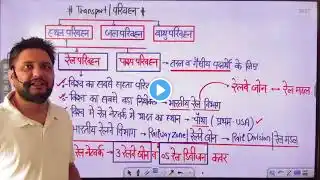 # Transport / परिवहन #
स्थल परिवहन जल परिवहन वायु परिवहन
रेल परिवहन पाइप परिवहन → तरल व गैसीय पदार्थों के लिए
विश्व का सबसे सस्ता परिवहन रेलवे जोन → रेल मंडल
विश्व का सबसे बड़ा नियोक्ता → भारतीय रेल विभाग
विश्व में रेल नेटवर्क में भारत का स्थान → चौथा (प्रथम-USA)
भारतीय रेलवे विभाग → Railway Zone रेलवे जोन → Rail Division रेल मंडल
रेल नेटवर्क → 3 रेलवे जोन व 05 रेल डिवीजन